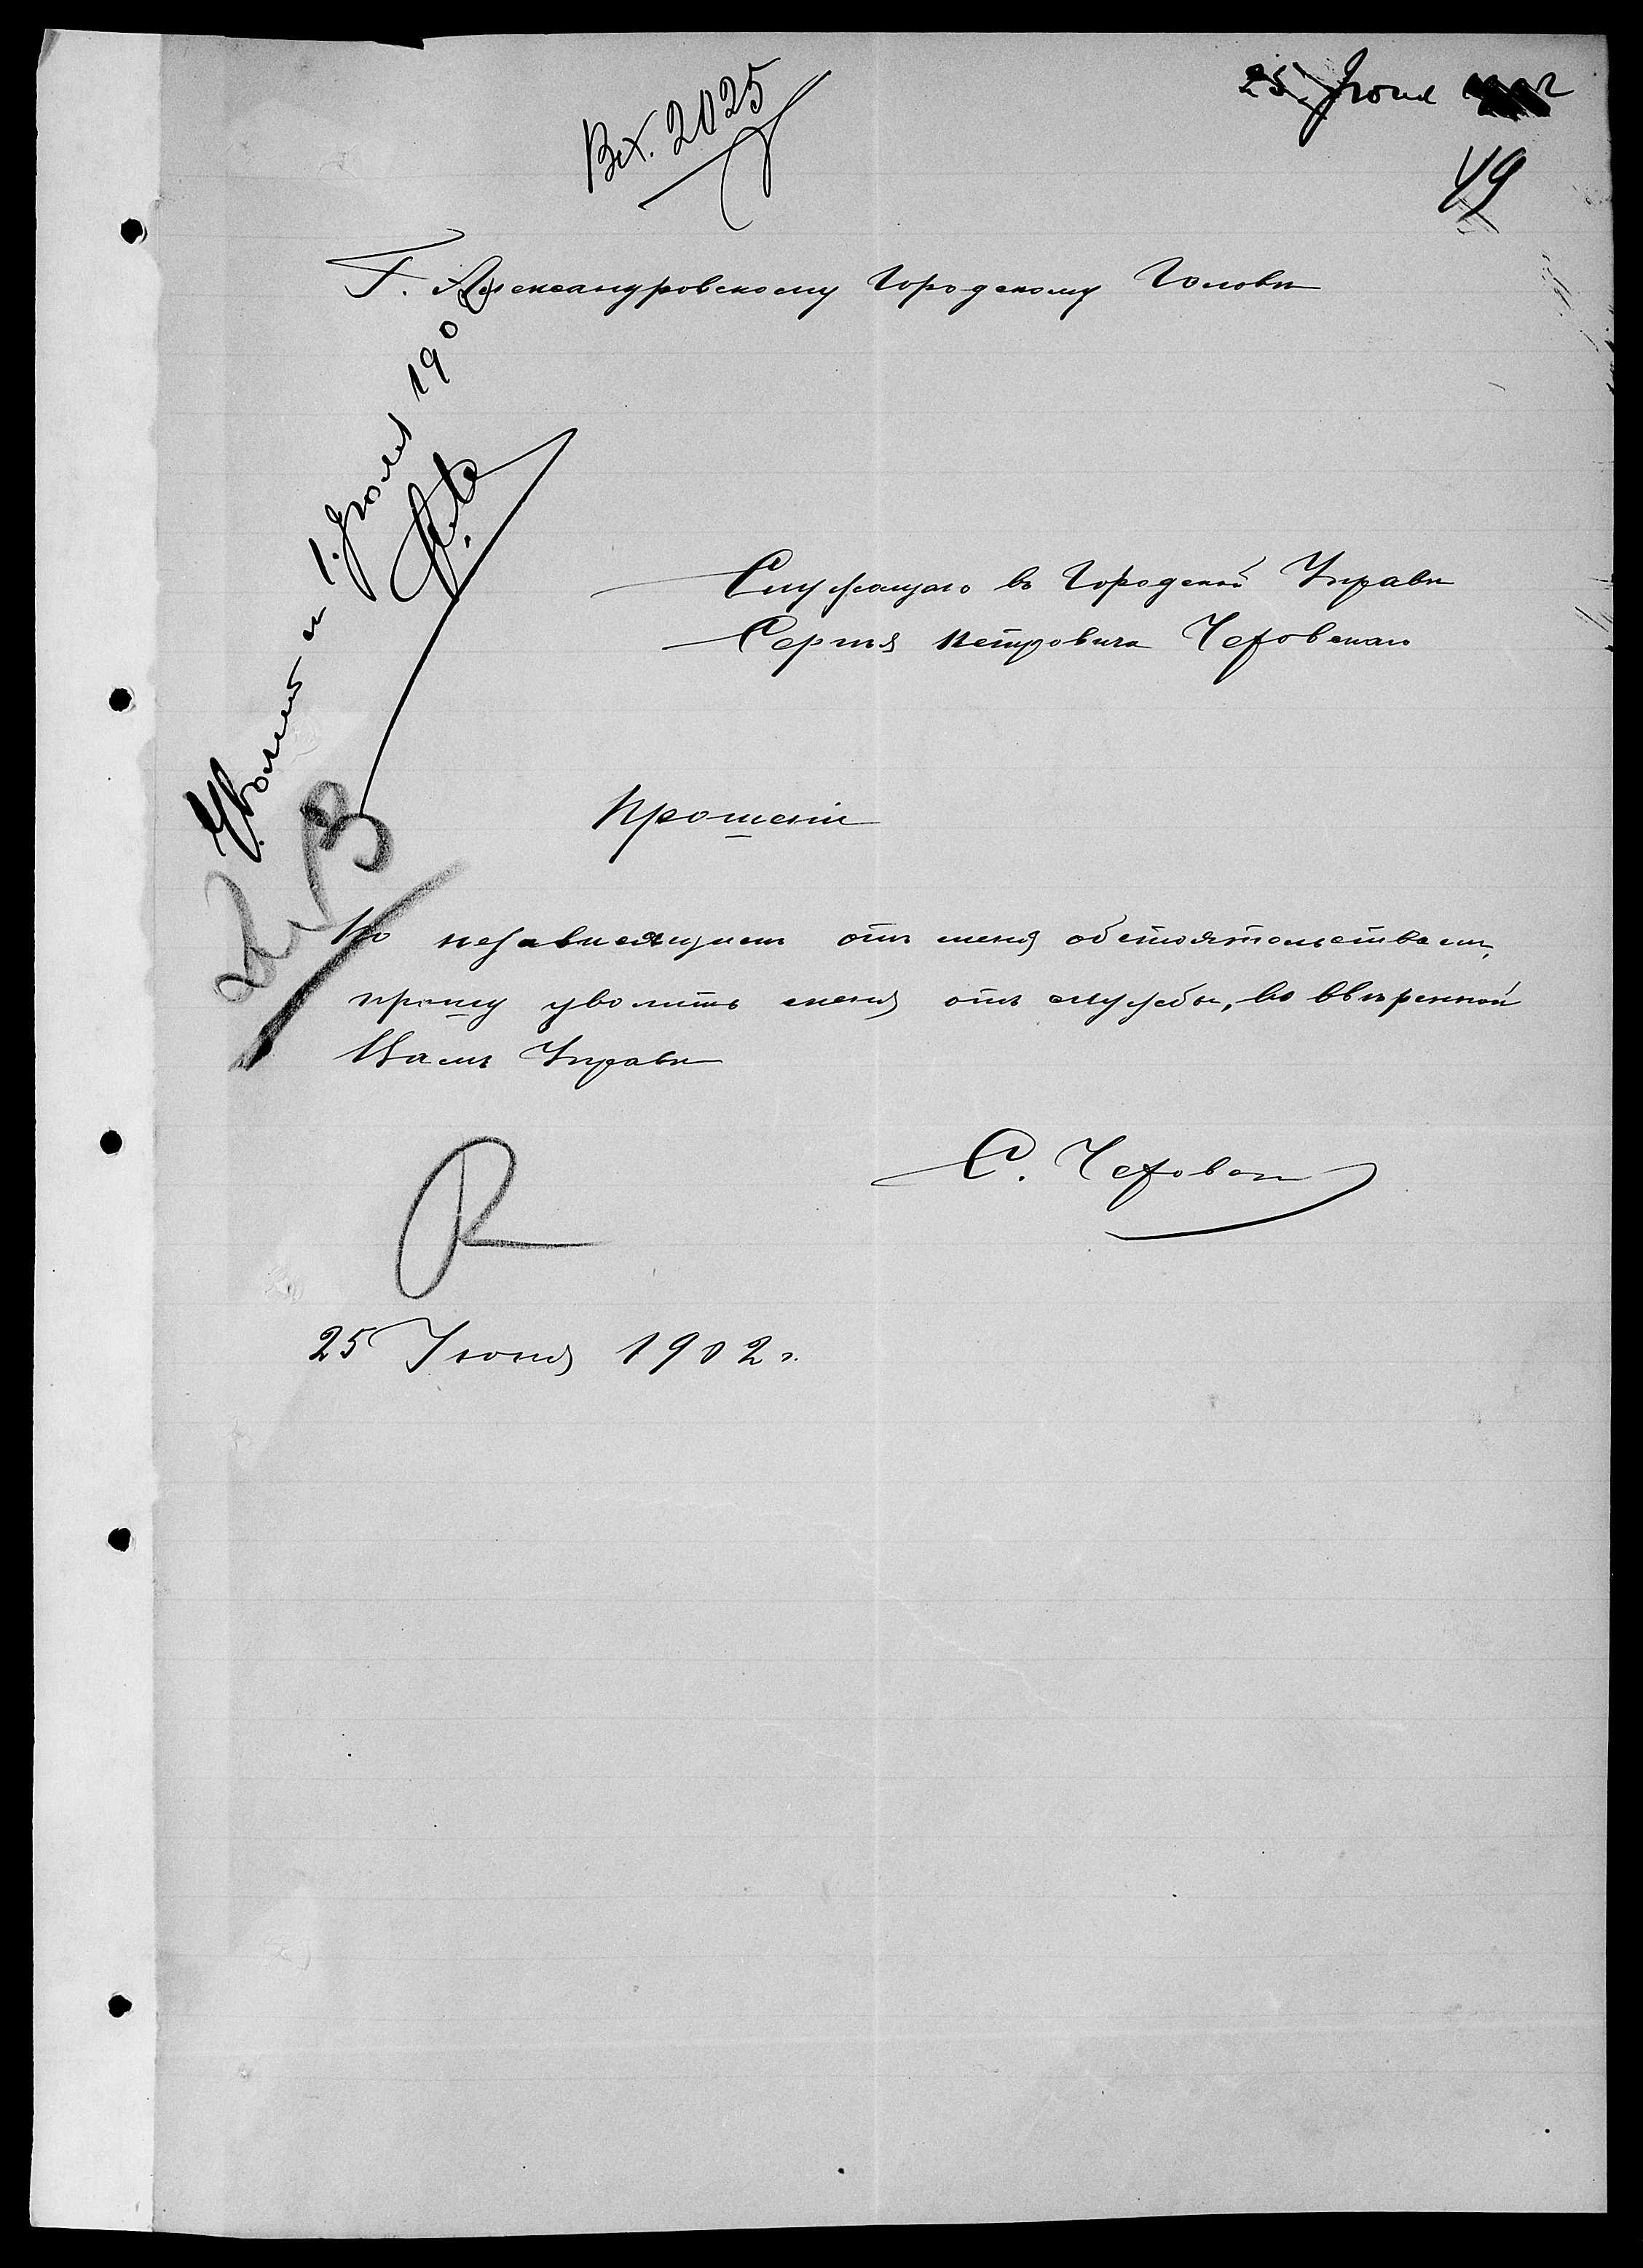 25 Іюня
Вх. 2025
49
Г. Александровскому Городскому Головѣ
Уволить съ 1 Іюля 1902
Служащаго въ Городской Управѣ
Сергѣя Петровича
Прошеніе
По независящимъ отъ меня обстоятельствамъ,
прошу уволить меня отъ службы, во ввѣренной
Вамъ Управѣ
С.
25 Іюня 1902 г.